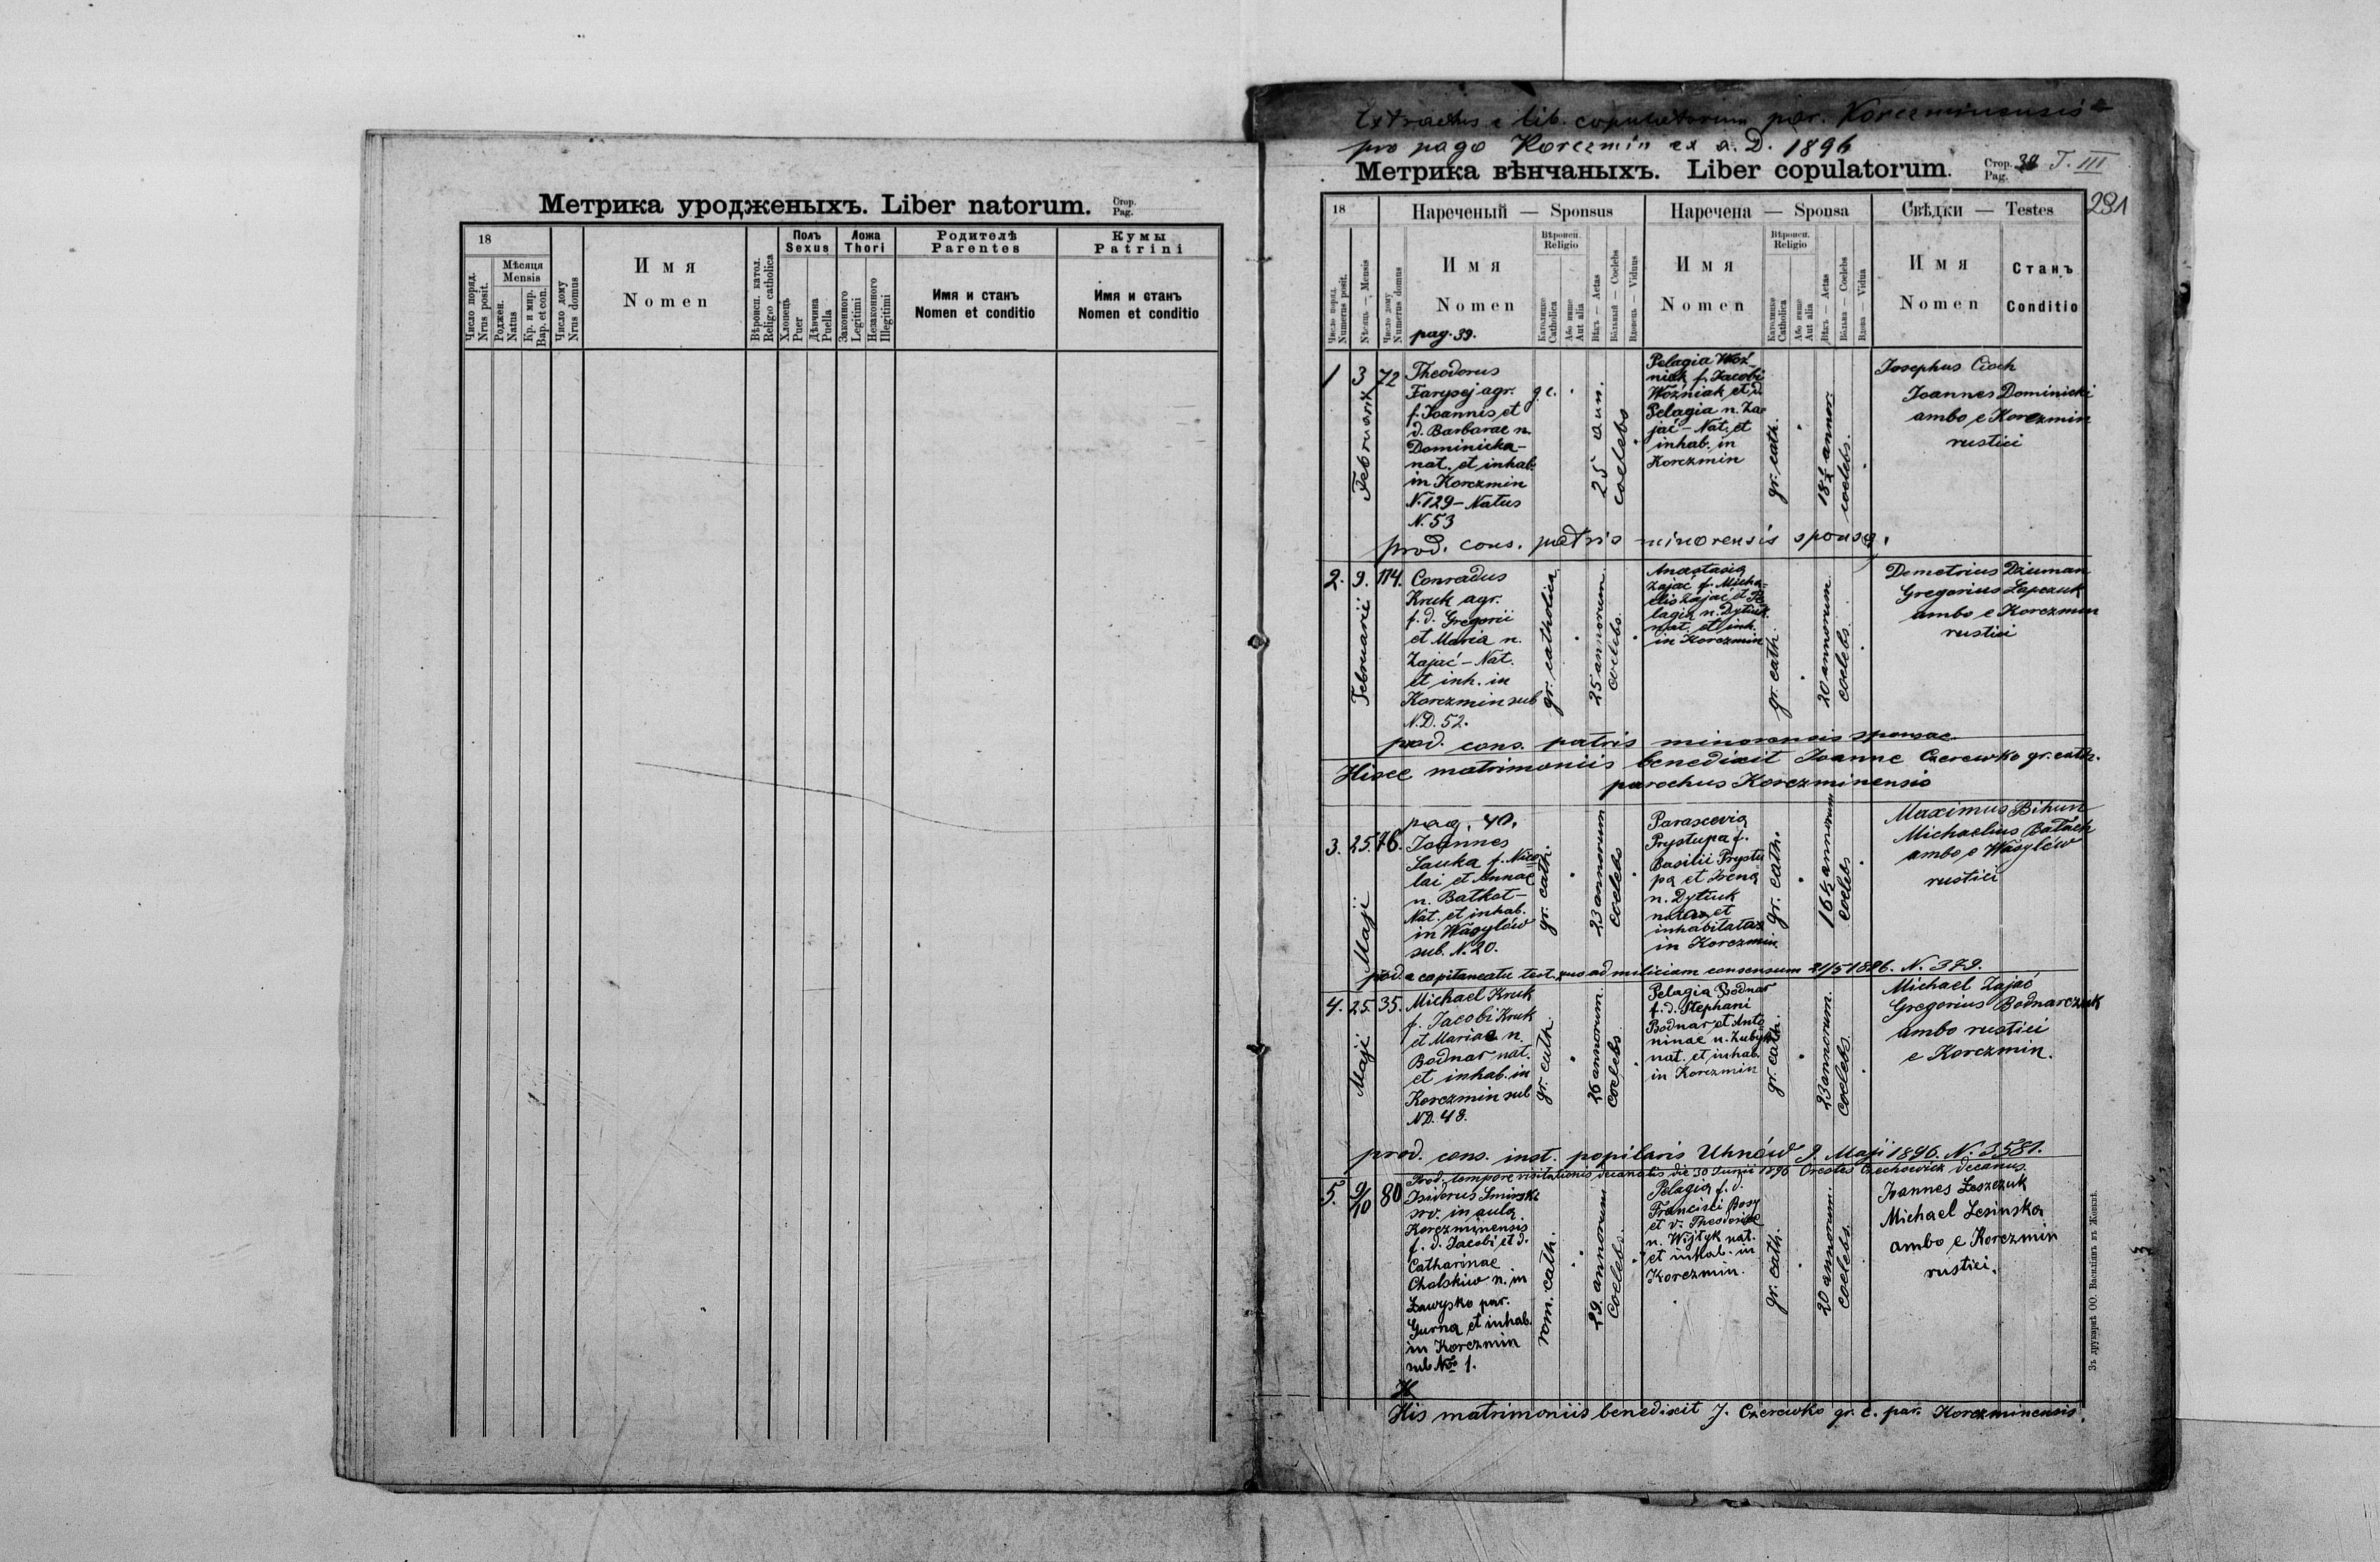 Метрика уродженыхъ. Liber natorum. Стор. Pag.
18
Мѣсяця
Mensis
Число поряд.
Nrus posit.
Роджен.
Natus
Кр. и мир.
Bap. et con.
Число дому
Nrus domus
И м я
N o m e n
Вѣроисп. катол.
Religio catholica
Полъ
Sexus
Хлопець
Puer
Дѣвчина
Puella
Ложа
Thori
Законного
Legitimi
Незаконного
Illegitimi
Родителѣ
Parentes
Имя и станъ
Nomen et conditio
Кумы
Patrini
Имя и станъ
Nomen et conditio
Extractus e lib. copulatorum par. Korczminensis
pro pago Korczmin ex a. D. 1896
Метрика вѣнчаныхъ. Liber copulatorum. Стор. Pag. T. III
291
18
Нареченый — Sponsus
Наречена — Sponsa
Свѣдки — Testes
Число поряд.
Numerus posit.
Мѣсяць — Mensis
Число дому
Numerus domus
И м я
N o m e n
pag. 39.
Вѣроисп.
Religio
Католицке
Catholica
Або инше
Aut alia
Вѣкъ — Aetas
Вольный — Coelebs
Вдовець — Viduus
И м я
N o m e n
Вѣроисп.
Religio
Католицке
Catholica
Або инше
Aut alia
Вѣкъ — Aetas
Вольна — Coelebs
Вдова — Vidua
И м я
N o m e n
Станъ
Conditio
1 3 Februarii 72
Theodorus
Farysej agr.
f. Joannis et
d. Barbarae n.
Dominicka –
nat. et inhab.
in Korczmin
N. 129 – Natus
N. 53
g. c.
25 ann.
coelebs
Pelagia Woź
niak f. Jacobi
Woźniak et d.
Pelagia n. Za
jać – Nat. et
inhab. in
Korczmin
gr. cath.
18½ annor.
coelebs.
Josephus Cioch
Joannes Dominicki
ambo e Korczmin
rustici
prod. cons. patris minorensis sponsa.
2. 9. Februarii 114.
Conradus
Kruk agr.
f. d. Gregorii
et Maria n.
Zajać – Nat.
et inh. in
Korczmin sub
N.D. 52.
gr. catholica
25 annorum.
coelebs.
Anastasia
Zajać f. Micha-
elis Zajać et Pe
lagia n. Dytiuk.
nat. et inh.
in Korczmin
gr. cath.
20 annorum.
coelebs.
Demetrius Dziuman
Gregorius Łapczuk
ambo e Korczmin
rustici
prod. cons. patris minorensis sponsae
Hisce matrimoniis benedixit Joanne Czerewko gr. cath.
parochus Korczminensis
pag. 40.
3. 25. Maji 76.
Joannes
Sauka f. Nico
lai et Annae
n. Batkot –
Nat. et inhab.
in Wasylów
sub. N. 20.
gr. cath.
23 annorum
coelebs
Parascevia
Prystupa f.
Basilii Prystu
pa et Irena
n. Dytiuk
nata et
inhabitata
in Korczmin
gr. cath.
16½ annorum
coeleb.
Maximus Bihun
Michaelius Bałach
ambo e Wasylów
rustici
prod. a capitaneatu test. quo ad miliciam consensum 21/5 1896. N. 379.
4. 25 Maji 35.
Michael Kruk
f. Jacobi Kruk
et Mariae n.
Bodnar nat.
et inhab. in
Korczmin sub
ND. 48.
gr. cath.
26 annorum.
coelebs
Pelagia Bodnar
f. d. Stephani
Bodnar et Anto
ninae n.
nat. et inhab.
in Korczmin
gr. cath.
23 annorum.
coelebs.
Michael Zajać
Gregorius Bodnarczuk
ambo rustici
e Korczmin.
prod. cons. inst. popilaris Uhnów 9. Maji 1896. N. 3581.
Prod. tempore visitationis decanalis die 30 Junii 1896 Orestes Czechowicz decanus.
5. 9/10 80
Isidorus Smirski
srv. in aula
Korczminensis
f. d. Jacobi et d.
Catharinae
Cholskiw n. in
Zawysko par.
Gurna et inhab.
in Korczmin
sub No 1.
rom. cath.
29. annorum
coelebs.
Pelagia f. d.
Francisci Bosy
et v. Theodorae
n. Wijtyk nat.
et inhab. in
Korczmin.
gr. cath.
20 annorum.
coelebs.
Joannes Leszczuk
Michael Lesinska
ambo e Korczmin
rustici.
His matrimoniis benedixit J. Czerewko gr. c. par. Korczminensis.
Зъ друкарнѣ ОО. Василіянъ въ Жовквѣ.